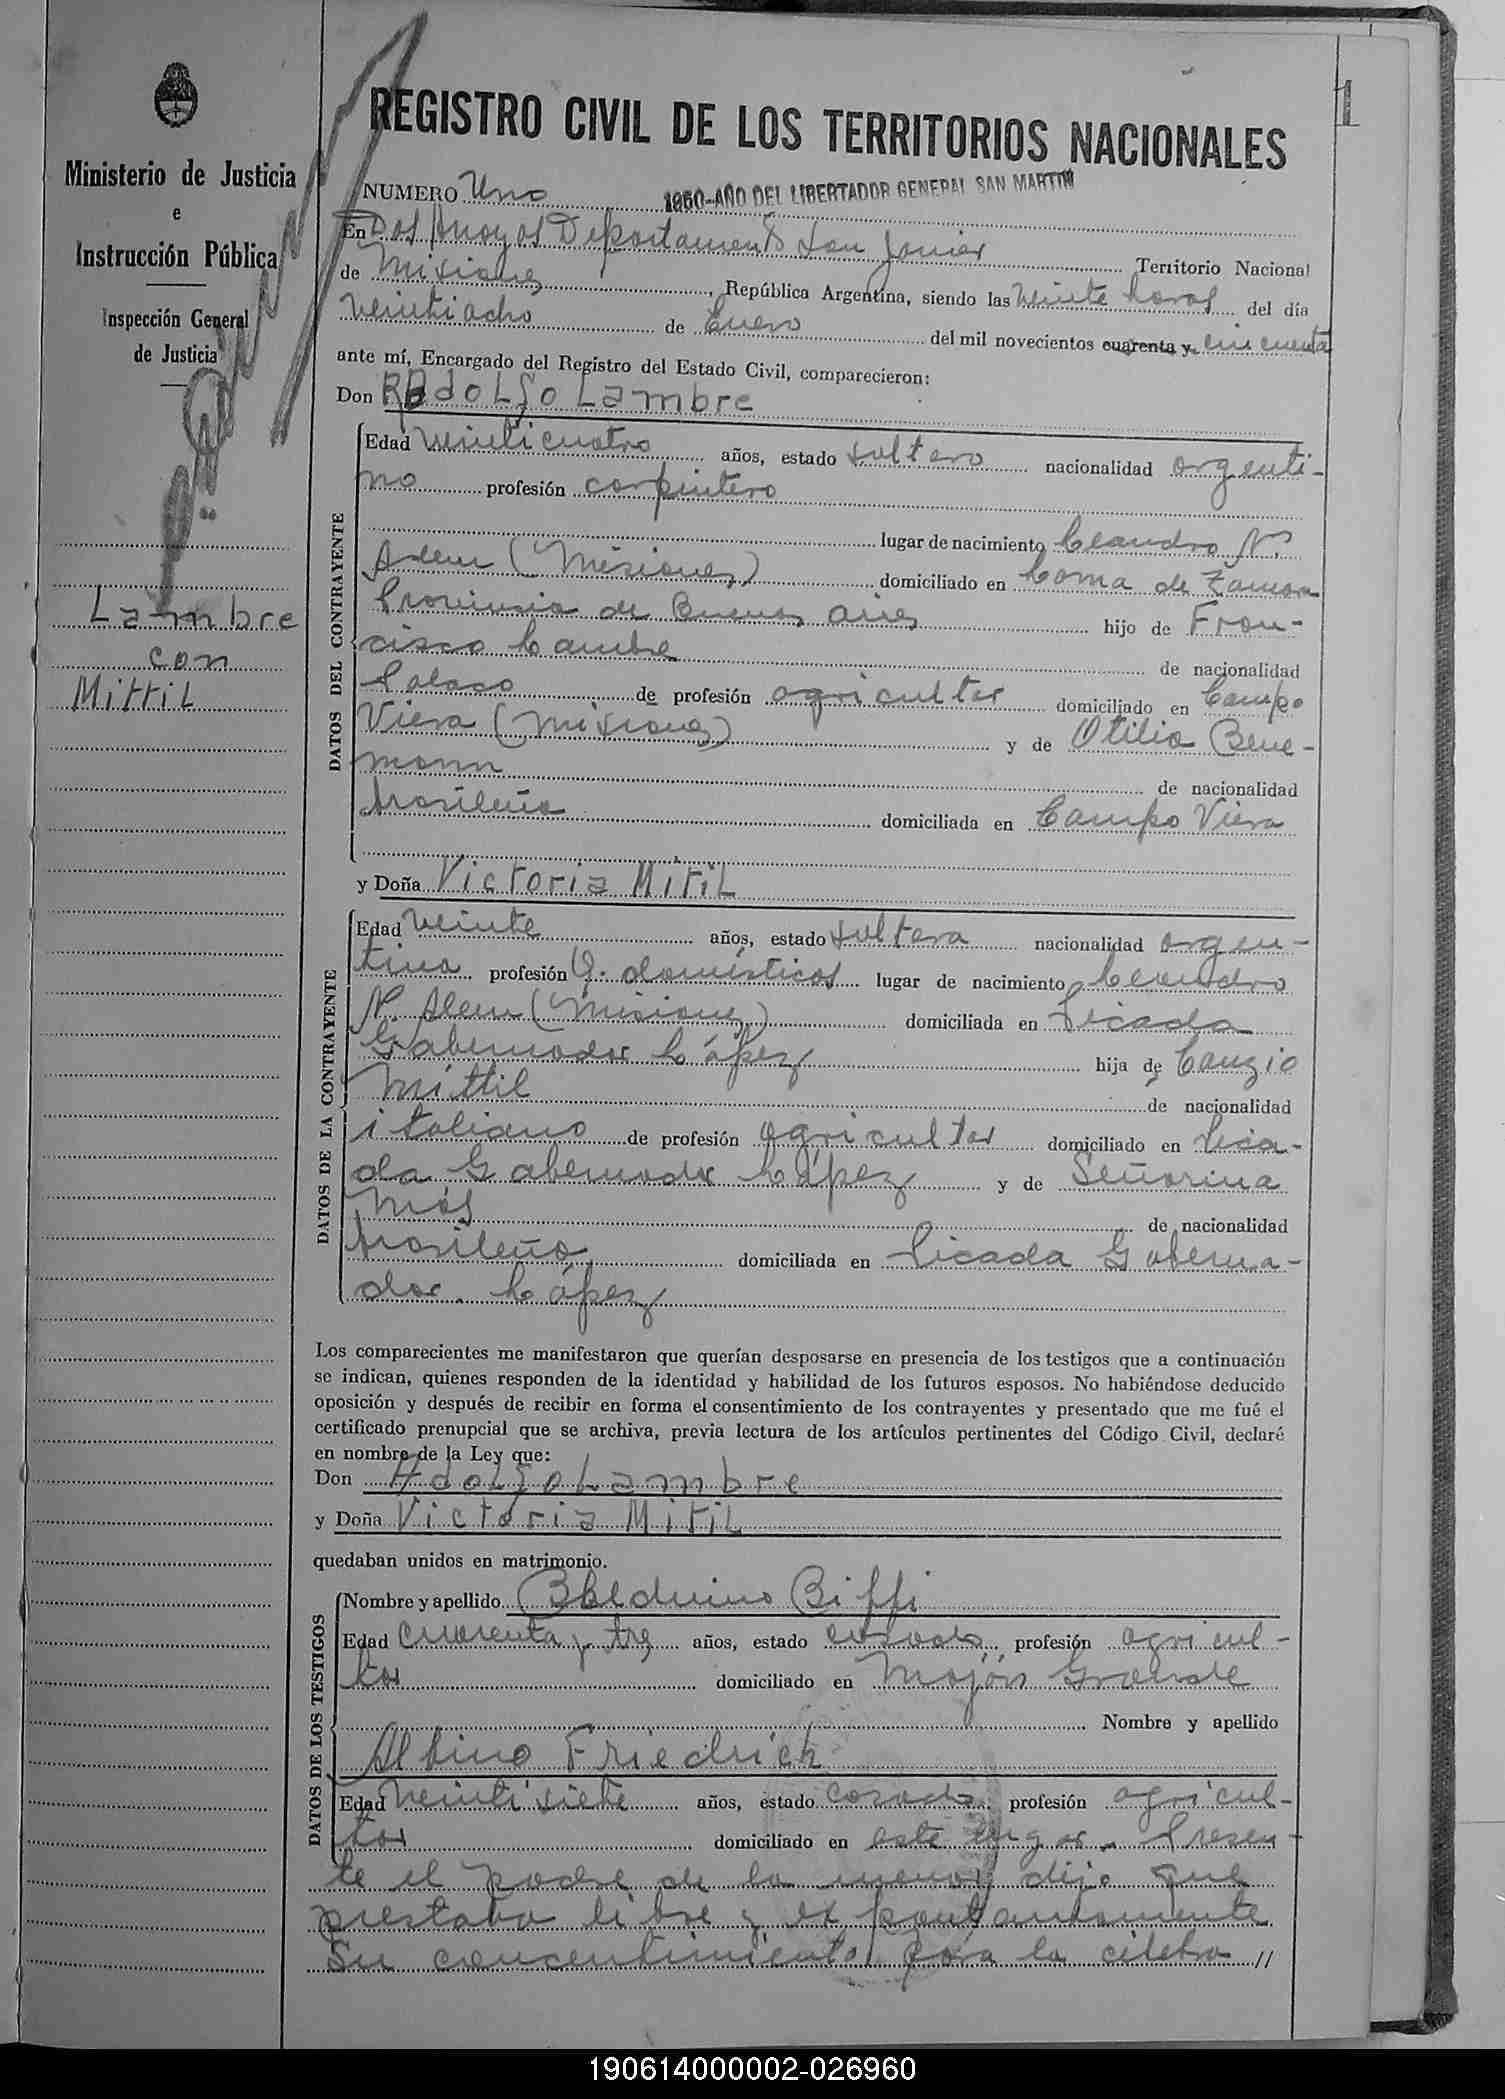 1
Ministerio de Justicia
e
Instrucción Pública
Inspección General
de Justicia
Lambre
con
Mittil
REGISTRO CIVIL DE LOS TERRITORIOS NACIONALES
NUMERO Uno
1950-AÑO DEL LIBERTADOR GENERAL SAN MARTIN
En Dos Arroyos Departamento San Javier Territorio Nacional
de Misiones, República Argentina, siendo las veinte horas del día
veintiocho de Enero del mil novecientos cuarenta y cincuenta
ante mí, Encargado del Registro del Estado Civil, comparecieron:
Don Rodolfo Lambre
DATOS DEL CONTRAYENTE
Edad veinticuatro años, estado soltero nacionalidad argenti-
no profesión carpintero
lugar de nacimiento Leandro N.
Alem (Misiones) domiciliado en Loma de Zamora
Provincia de Buenos Aires hijo de Fran-
cisco Lambre de nacionalidad
Polaco de profesión agricultor domiciliado en Campo
Viera (Misiones) y de Otilia Bene-
mann de nacionalidad
brasileña domiciliada en Campo Viera
y Doña Victoria Mitil
DATOS DE LA CONTRAYENTE
Edad veinte años, estado soltera nacionalidad argen-
tina profesión Q. domésticos lugar de nacimiento Leandro
N. Alem (Misiones) domiciliada en Picada
Gobernador López hija de Canzio
Mittil de nacionalidad
italiano de profesión agricultor domiciliado en Pica-
da Gobernador López y de Señorina
Más de nacionalidad
brasileña domiciliada en Picada Goberna-
dor López
Los comparecientes me manifestaron que querían desposarse en presencia de los testigos que a continuación
se indican, quienes responden de la identidad y habilidad de los futuros esposos. No habiéndose deducido
oposición y después de recibir en forma el consentimiento de los contrayentes y presentado que me fué el
certificado prenupcial que se archiva, previa lectura de los artículos pertinentes del Código Civil, declaré
en nombre de la Ley que:
Don Adolfo Lambre
y Doña Victoria Mitil
quedaban unidos en matrimonio.
DATOS DE LOS TESTIGOS
Nombre y apellido Balduino Biffi
Edad cuarenta y tres años, estado casado profesión agricul-
tor domiciliado en Mojón Grande
Nombre y apellido
Albino Friedrich
Edad veintisiete años, estado casado profesión agricul-
tor domiciliado en este lugar. Presen-
te el padre de la menor dijo que
prestaba libre y expontaneamente
su concentimiento para la celebra //
190614000002-026960